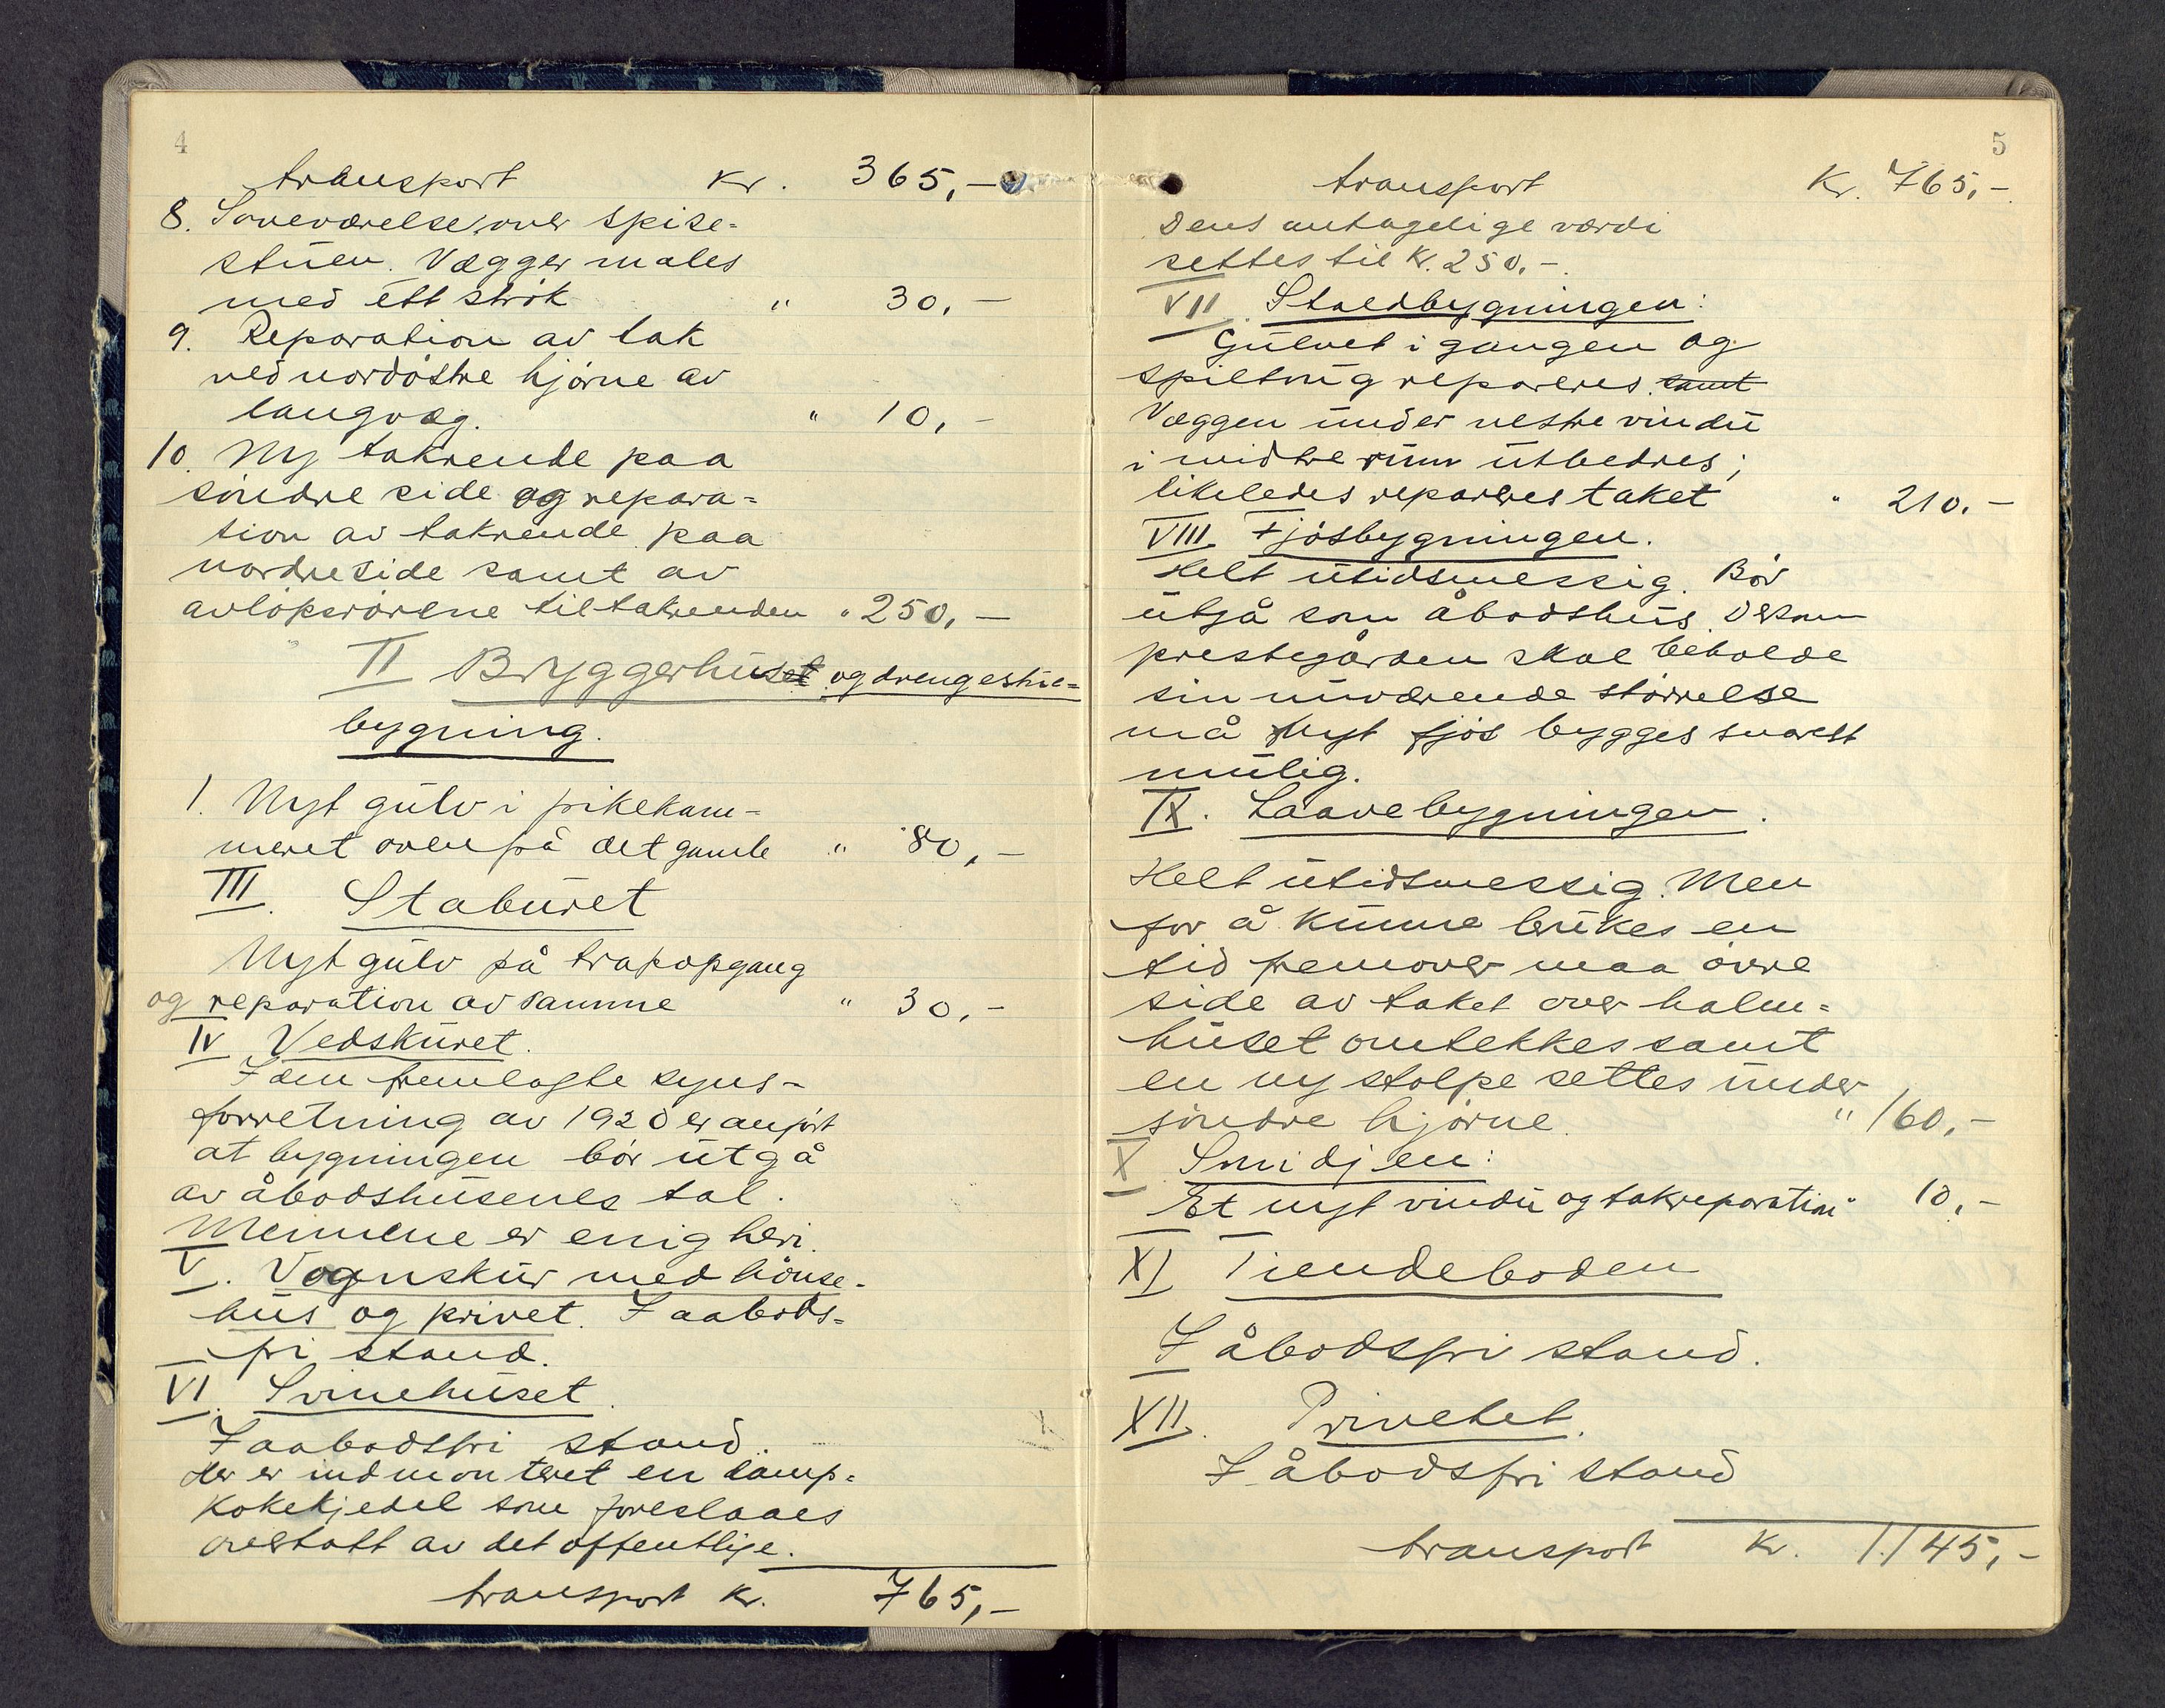 4
transport kr. 365,-
8. Soveværelse over spise-
stuen. Vægger males
med ett strøk " 30,-
9. Reparation av tak
ved nordøstre hjørne av
langvæg. " 10,-
10. Ny takrende paa
søndre side og repara-
tion av takrende paa
nordre side samt av
avløpsrørene til takrenden " 250,-
II Bryggerhuset og drengestue-
bygning.
1. Nyt gulv i pikekam-
meret oven på det gamle " 80,-
III. Staburet
Nyt gulv på trapopgang
og reparation av samme " 30,-
IV Vedskuret.
I den fremlagte syns-
forretning av 1920 er anført
at bygningen bør utgå
av åbodshusenes tal.
Mennene er enig heri.
V. Vognskur med hønse-
hus og privet. I aabods-
fri stand.
VI. Svinehuset.
I aabodsfri stand.
Her er indmonteret en damp-
kokekjedel som foreslaaes
overtatt av det offentlige.
transport kr. 765,-
5
transport Kr. 765,-
Dens antagelige værdi
settes til Kr. 250.-.
VII. Staldbygningen:
Gulvet i gangen og
spiltong repareres. samt
Væggen under vestre vindu
i midtre rum utbedres;
likeledes repareres taket " 210.-
VIII. Fjøsbygningen.
Helt utidsmessig. Bør
utgå som åbodshus. Dersom
prestegården skal beholde
sin nuværende størrelse
må nyt fjøs bygges snarest
mulig.
IX. Laavebygningen.
Helt utidsmessig. Men
for å kunne brukes en
tid fremover maa øvre
side av taket over halm-
huset omtekkes samt
en ny stolpe settes under
søndre hjørne. " 160,-
X Smidjen:
Et nyt vindu og takreparation " 10,-
XI Tiendeboden
I åbodsfri stand.
XII. Privetet.
I åbodsfri stand
transport kr. 1145,-